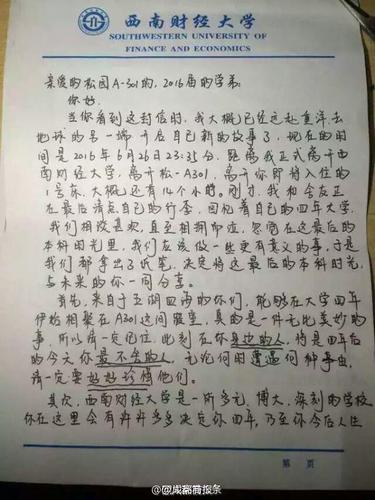 西南财经大学
SOUTHWESTERN UNIVERSITY OF
FINANCE AND ECONOMICS
亲爱的松园A-301的，2016届的学弟：
你好，
当你看到这封信时，我大概已经远赴重洋，去
地球的另一端开启自己新的故事了，现在的时
间是2016年6月26日23:35分，距离我正式离开西
南财经大学，离开松-A301，离开你即将入住的
1号床，大概还有14个小时。刚才，我和舍友正
在最后清点自己的行李，回忆着自己的四年大学，
我们相视是泪，直至相拥而泣，忽觉在这最后的
本科时光里，我们应该做一些更有意义的事，于是
我们都拿出了纸笔，决定将这最后的本科时光，
与未来的你一同分享。
首先，来自于五湖四海的你们，能够在大学四年
伊始相聚在A301这间寝室，真的是一件无比美妙的
事，所以请一定记住，此刻在你身边的人，将是四年后
的今天你最不舍的人，无论何时遭遇何种事由，
请一定要好好珍惜他们。
其次，西南财经大学是一所多元，博大，深刻的学校，
你在这里会有许许多多决定你四年，乃至你今后人生
第 页